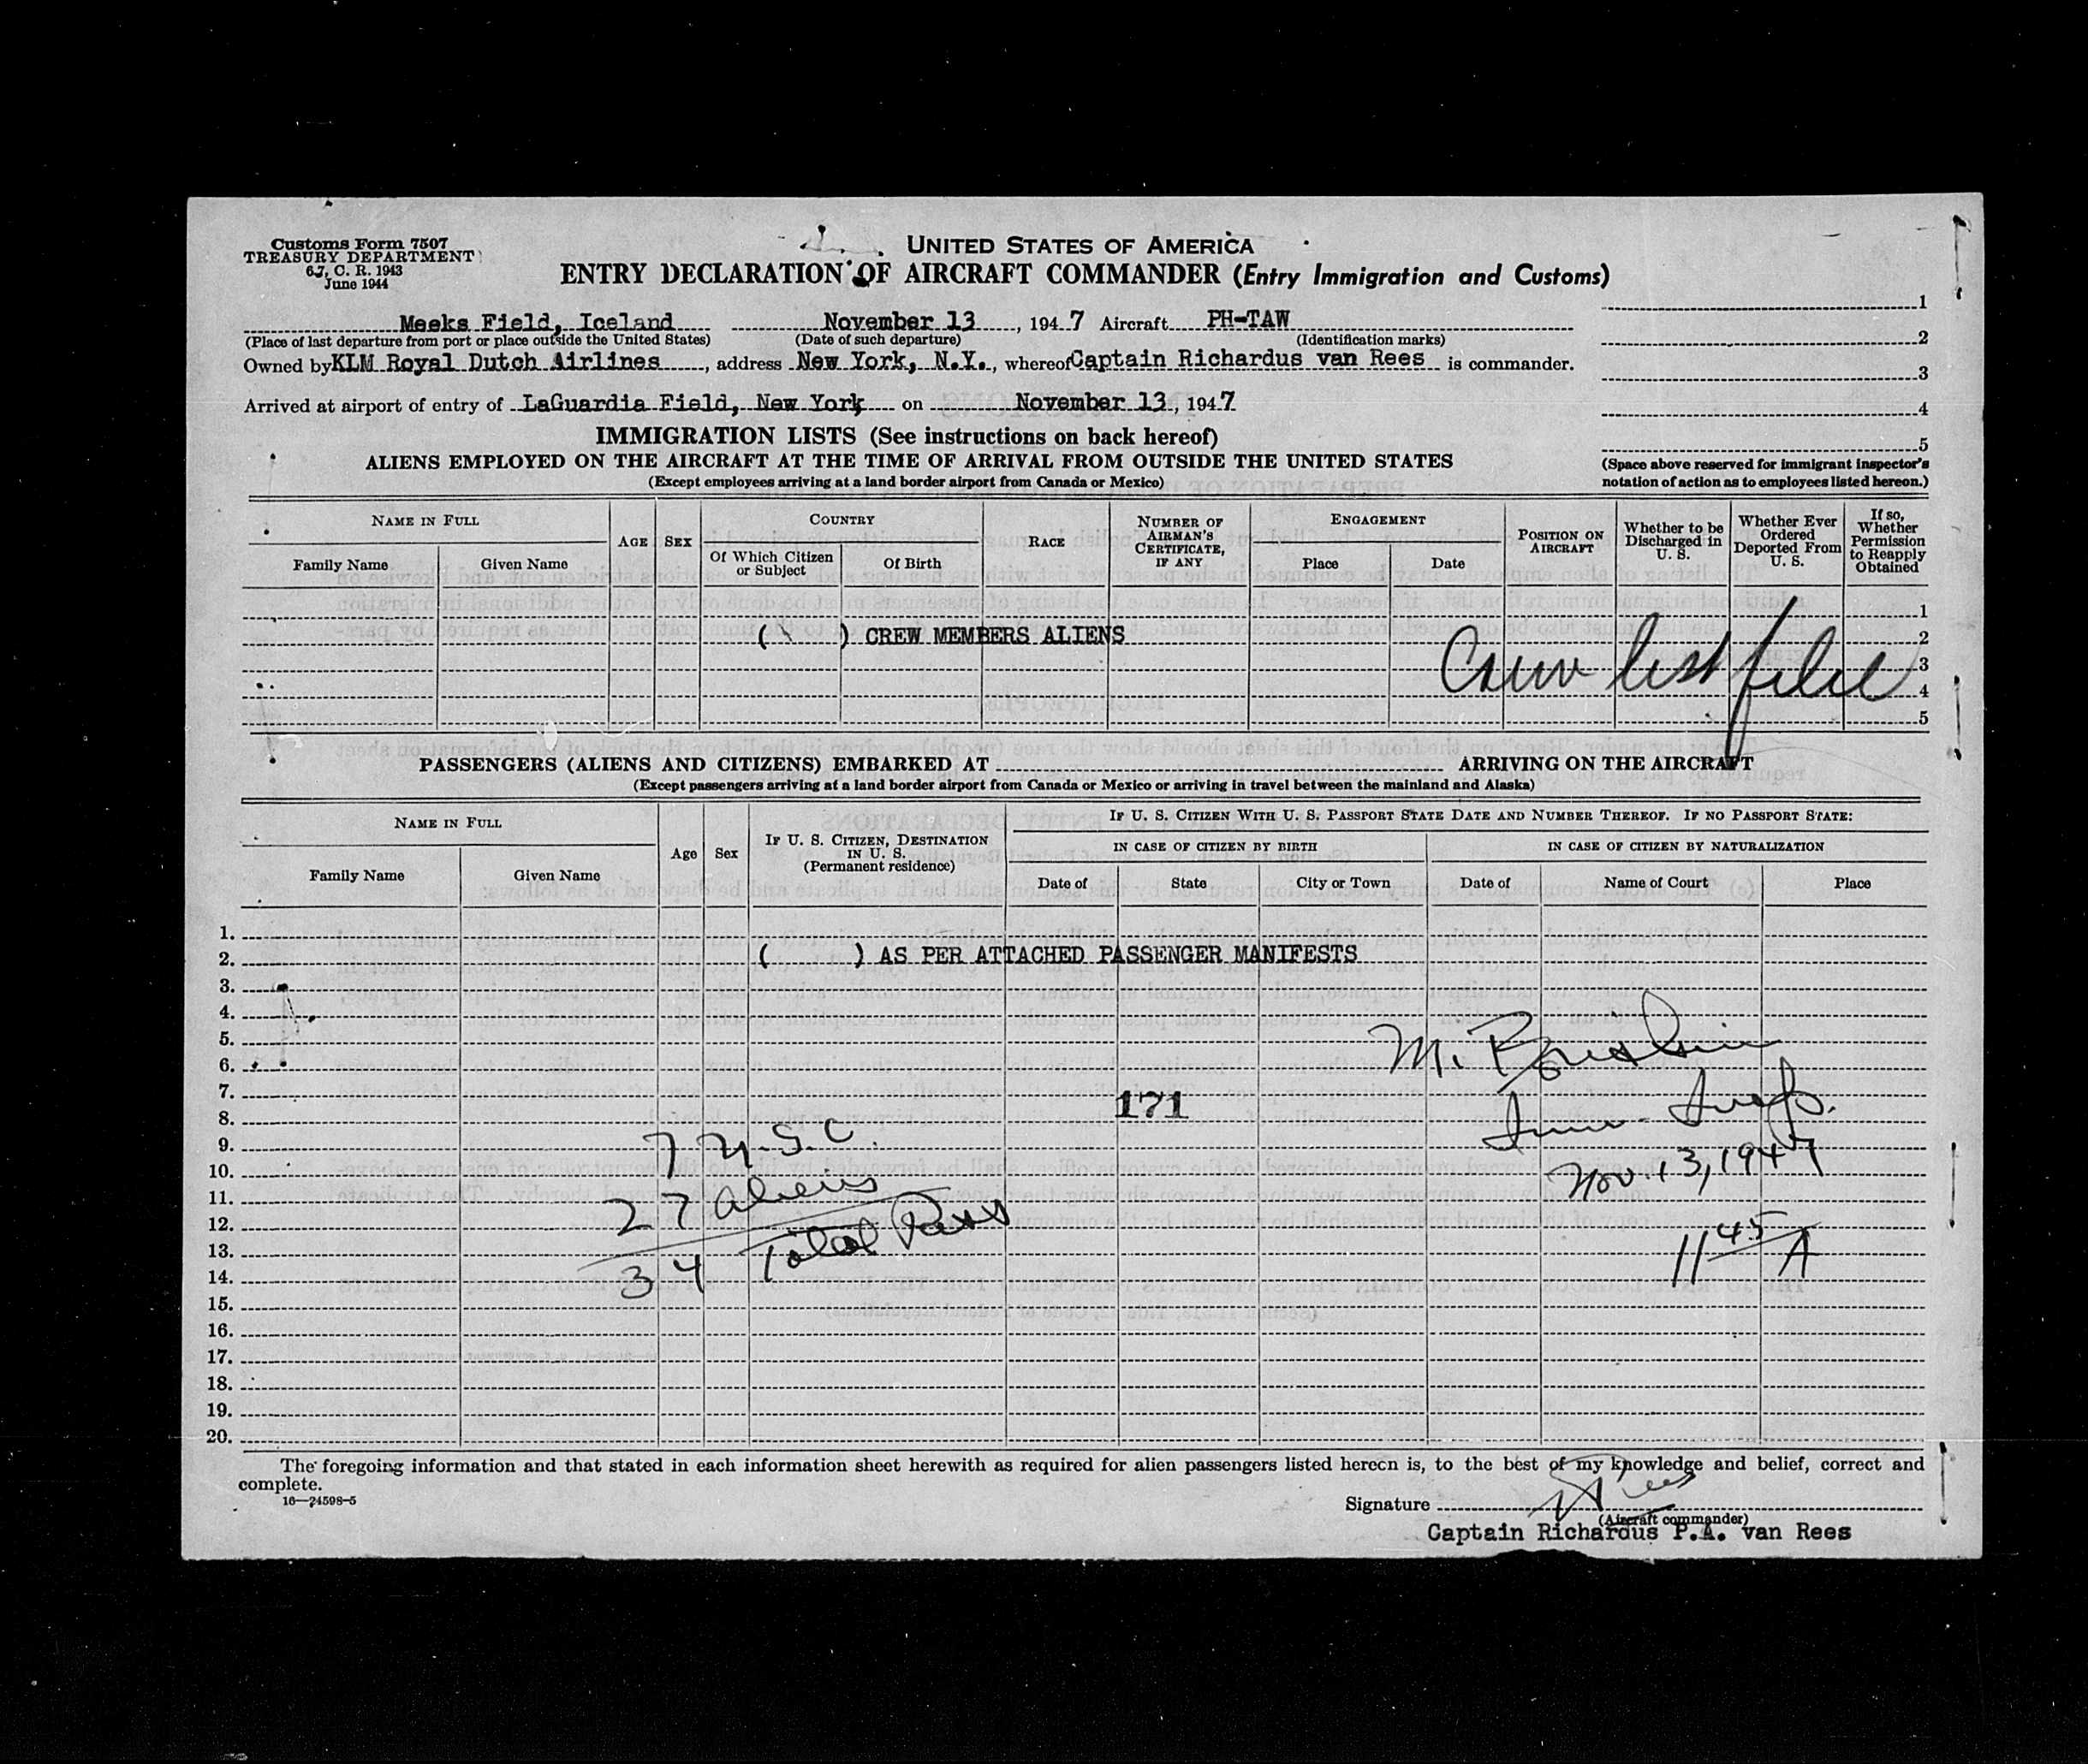 Customs Form 7507
TREASURY DEPARTMENT
6J, C. R. 1943
June 1944
UNITED STATES OF AMERICA
ENTRY DECLARATION OF AIRCRAFT COMMANDER (Entry Immigration and Customs)
Meeks Field, Iceland November 13, 1947 Aircraft PH-TAW
(Place of last departure from port or place outside the United States) (Date of such departure) (Identification marks)
Owned by KLM Royal Dutch Airlines, address New York, N.Y., whereof Captain Richardus van Rees is commander.
Arrived at airport of entry of LaGuardia Field, New York on November 13, 1947
1
2
3
4
5
(Space above reserved for immigrant inspector's
notation of action as to employees listed hereon.)
IMMIGRATION LISTS (See instructions on back hereof)
ALIENS EMPLOYED ON THE AIRCRAFT AT THE TIME OF ARRIVAL FROM OUTSIDE THE UNITED STATES
(Except employees arriving at a land border airport from Canada or Mexico)
NAME IN FULL
Family Name
Given Name
AGE
SEX
COUNTRY
Of Which Citizen
or Subject
Of Birth
RACE
NUMBER OF
AIRMAN'S
CERTIFICATE,
IF ANY
ENGAGEMENT
Place
Date
POSITION ON
AIRCRAFT
Whether to be
Discharged in
U. S.
Whether Ever
Ordered
Deported From
U. S.
If so,
Whether
Permission
to Reapply
Obtained
1
( ) CREW MEMBERS ALIENS 2
Crew list filed 3
4
5
PASSENGERS (ALIENS AND CITIZENS) EMBARKED AT ARRIVING ON THE AIRCRAFT
(Except passengers arriving at a land border airport from Canada or Mexico or arriving in travel between the mainland and Alaska)
NAME IN FULL
Family Name
Given Name
Age
Sex
IF U. S. CITIZEN, DESTINATION
IN U. S.
(Permanent residence)
IF U. S. CITIZEN WITH U. S. PASSPORT STATE DATE AND NUMBER THEREOF. IF NO PASSPORT STATE:
IN CASE OF CITIZEN BY BIRTH
Date of
State
City or Town
IN CASE OF CITIZEN BY NATURALIZATION
Date of
Name of Court
Place
1.
2. ( ) AS PER ATTACHED PASSENGER MANIFESTS
3.
4.
5.
6. M.
7.
8. 171 Imm. Insp.
9. 7 U.S.C.
10. Nov. 13, 1947
11. 27 aliens
12.
13. 34 Total Pass 11 45 A
14.
15.
16.
17.
18.
19.
20.
The foregoing information and that stated in each information sheet herewith as required for alien passengers listed hereon is, to the best of my knowledge and belief, correct and
complete.
16—24598-5
Signature
(Aircraft commander)
Captain Richardus P.A. van Rees